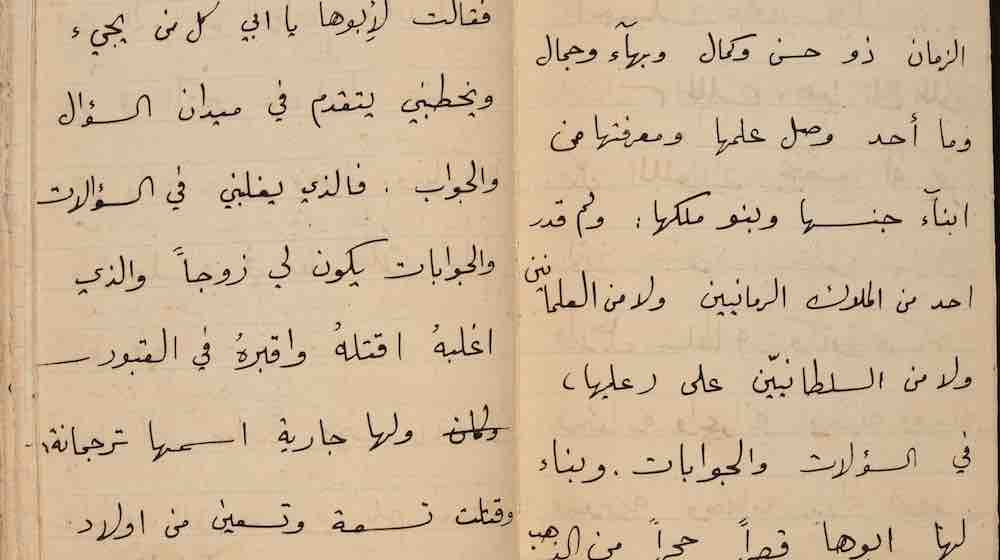 الزمان ذو حسن وكمال وبهآء وجمال
وما أحد وصل علمها ومعرفتها من
ابنآء جنسها وبنو ملكها: ولم قدر
احد من الملاك الرمانيين ولا من العلمانيين
ولا من السلطانيّين على (عليها)
في السؤلات والجوابات . وبناء
لها ابوها قصراً حجراً من الذهب
فقالت لأبوها يا ابي كل من يجيء
ويخطبني يتقدم في ميدان السؤال
والجواب . فالذي يغلبني في السؤالات
والجوابات يكون لي زوجاً والذي
اغلبهُ اقتلهُ واقبرهُ في القبور
ولها جارية اسمها ترجمانة
وقتلت تسعة وتسعين من اولاد